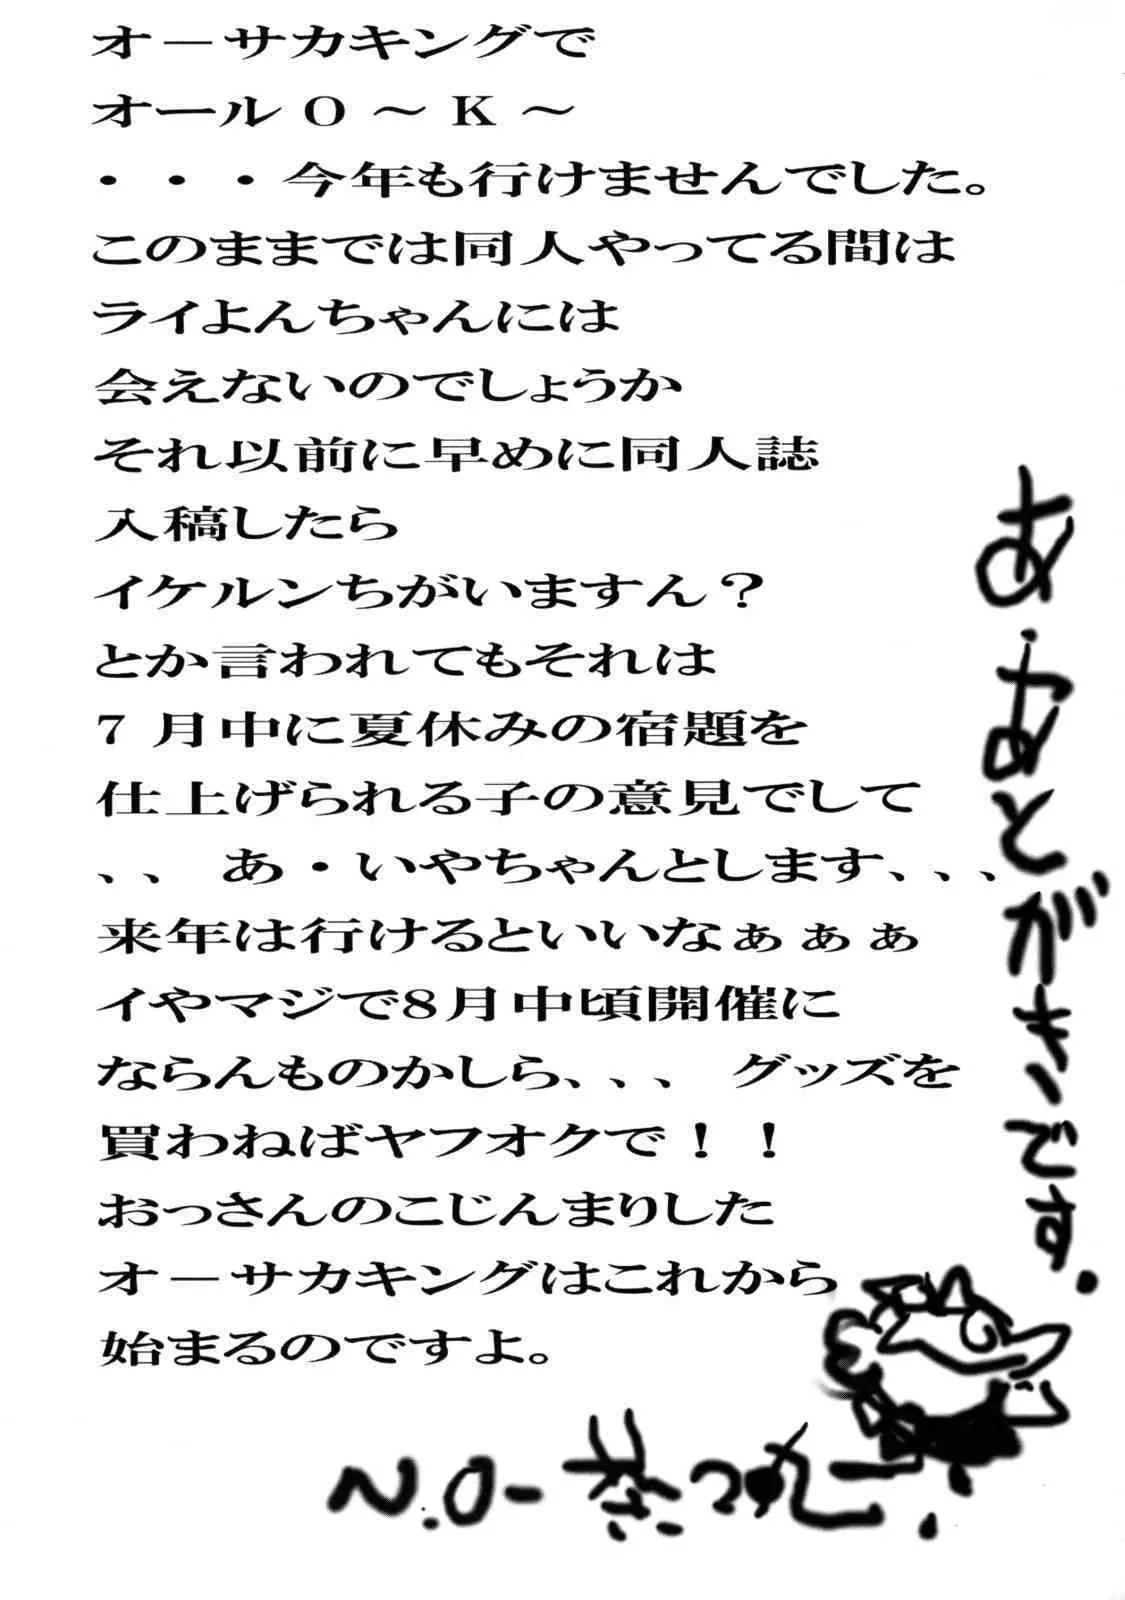 オーサカキングで
オールO～K～
・・・今年も行けませんでした。
このままでは同人やってる間は
ライよんちゃんには
会えないのでしょうか
それ以前に早めに同人誌
入稿したら
イケルンちがいますん？
とか言われてもそれは
7月中に夏休みの宿題を
仕上げられる子の意見でして
、、 あ・いやちゃんとします、、、
来年は行けるといいなぁぁぁ
イやマジで8月中頃開催に
ならんものかしら、、、 グッズを
買わねばヤフオクで！！
おっさんのこじんまりした
オーサカキングはこれから
始まるのですよ。
あ・あとがきです.
N.O-